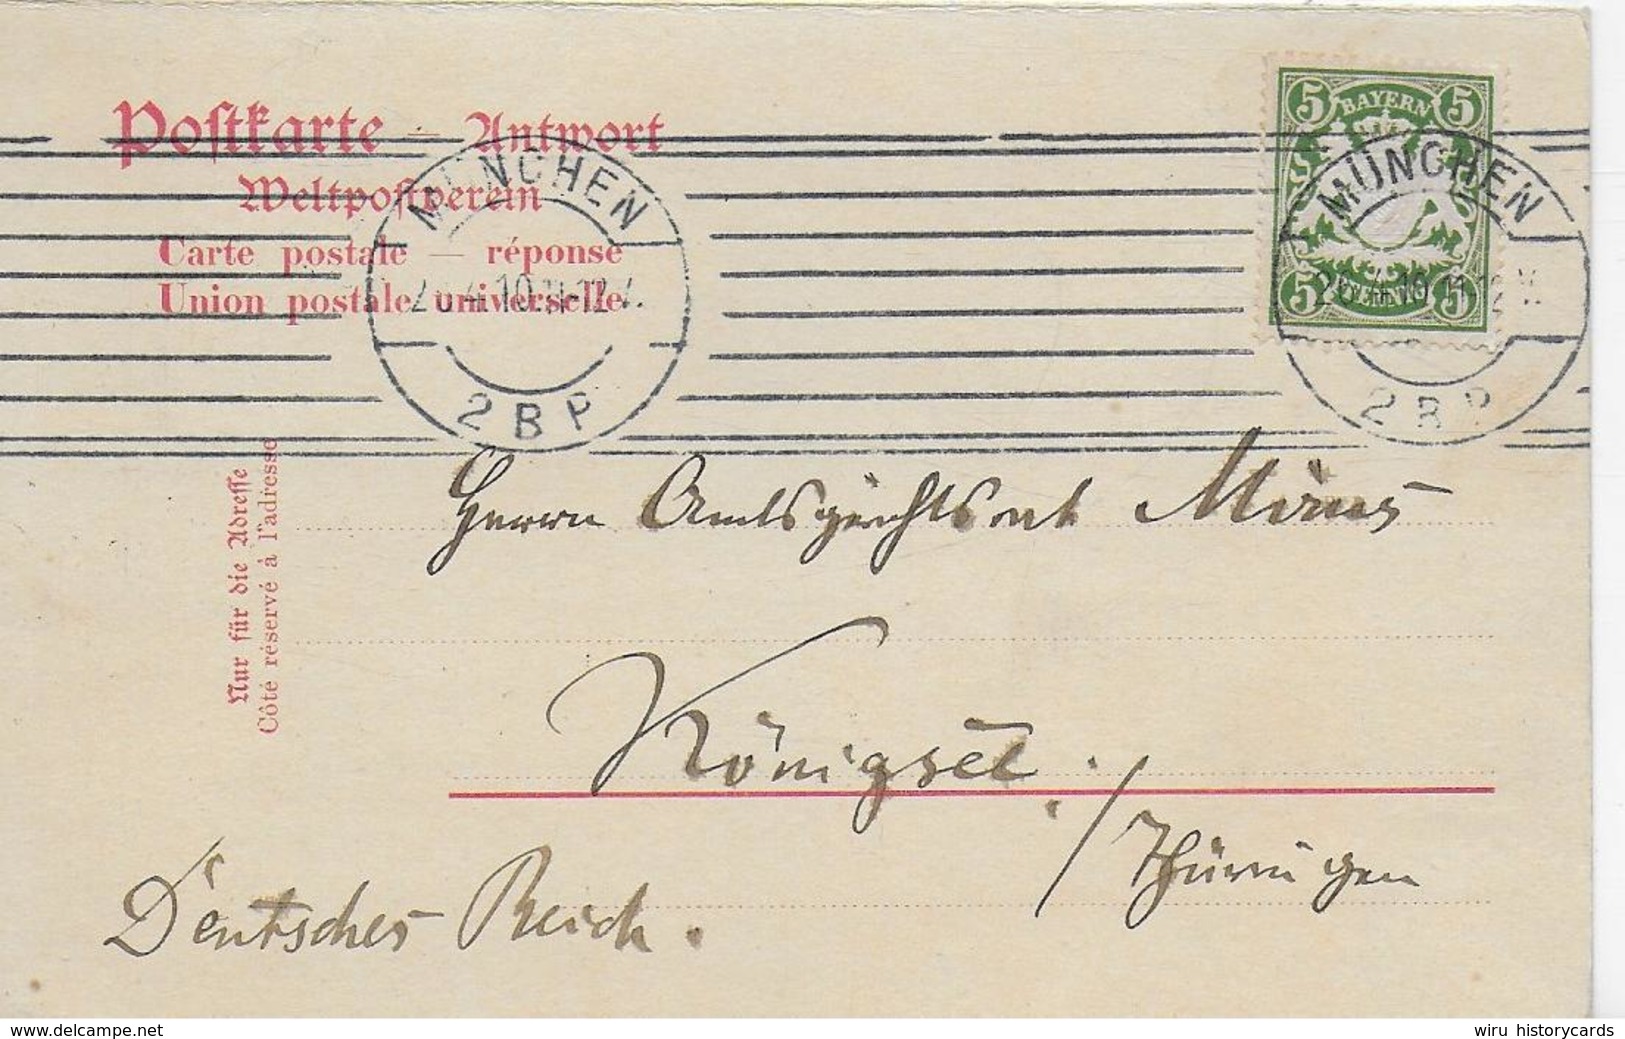 Postkarte – Antwort
Weltpostverein
Carte postale — réponse
Union postale universelle
BAYERN
5 5
5 5
MÜNCHEN
4.10. 11-12
2 B P
MÜNCHEN
4.10 11-12
2 B P
Nur für die Adresse
Côté réservé à l'adresse
Herrn Amtsgerichtsrat
Königsee.
/Thüringen
Deutsches Reich.
www.delcampe.net
wiru historycards